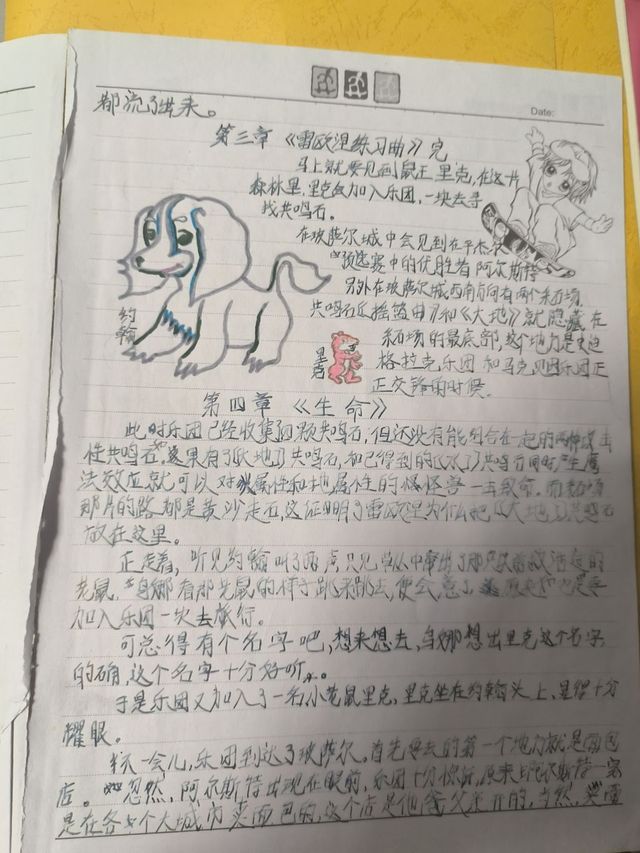 都流了出来。
Date:
第三章《雷欧涅练习曲》完
马上就要见到鼠王里克,在这一片
森林里,里克会加入乐团,一块去寻
找共鸣石。
在玻萨尔城中会见到在平杰尔
预选赛中的优胜者阿尔斯特
另外在玻萨尔城西南方向有两个采石场
共鸣石《摇篮曲》和《大地》就隐藏在
采石场的最底部,这个地方是史迪
格拉克乐团和马克贝因乐团正
正交锋的时候。
约翰
里克
第四章《生命》
此时乐团已经收集四颗共鸣石,但还没有能组合在一起的两件攻击
性共鸣石,如果有了《大地》共鸣石,和已得到的《水》共鸣石同时产生魔
法效应就可以对属性和地属性的怪兽一击致命。而采石场
那片的路都是黄沙走石,这证明了雷欧涅为什么把《大地》共鸣石
放在这里。
正走着,听见约翰叫了两声只见草丛中窜出了那只以前救活过的
花鼠。乌娜看那花鼠的样子跳来跳去,便会意了原来它也是要
加入乐团一块去旅行。
可总得有个名字吧,想来想去,乌娜想出里克这个名字
的确,这个名字十分好听。
于是乐团又加入了一名小花鼠里克,里克坐在约翰头上,显得十分
耀眼。
不一会儿,乐团到达了玻萨尔。首先要去的第一个地方就是面包
店。忽然,阿尔斯特出现在眼前,乐团十分惊讶,原来阿尔斯特一家
是在各个大城市卖面包的,这个店是他爹父亲开的,当然,买面